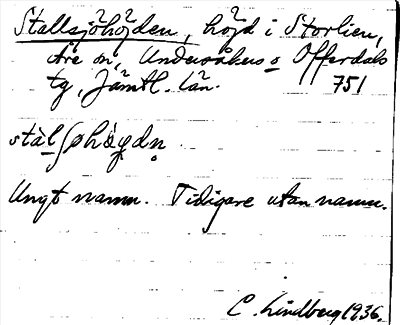 Stallsjöhöjden, höjd i Storlien,
Åre sn, Undersåkers o Offerdals
tg, Jämtl. län. 751
stàlʃøhöɡdn̥
Ungt namn. Tidigare utan namn.
C. Lindberg 1936.